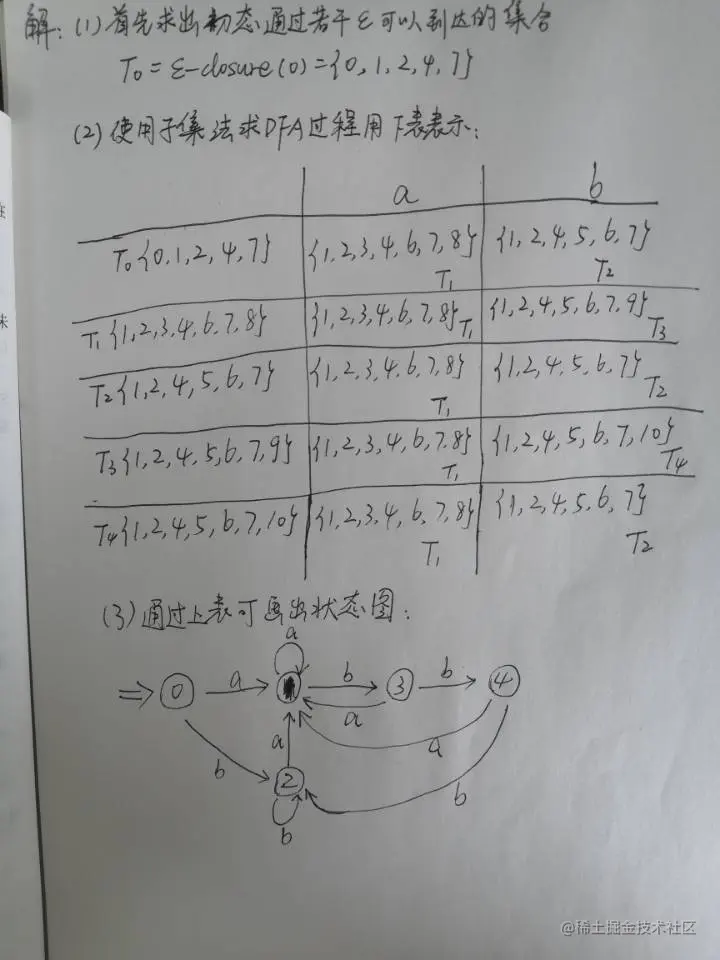 解：(1) 首先求出初态通过若干ε可以到达的集合
T0 = ε-closure(0) = {0, 1, 2, 4, 7}
(2) 使用子集法求DFA过程用下表表示：
a b
T0{0,1,2,4,7} {1,2,3,4,6,7,8} T1 {1,2,4,5,6,7} T2
T1{1,2,3,4,6,7,8} {1,2,3,4,6,7,8} T1 {1,2,4,5,6,7,9} T3
T2{1,2,4,5,6,7} {1,2,3,4,6,7,8} T1 {1,2,4,5,6,7} T2
T3{1,2,4,5,6,7,9} {1,2,3,4,6,7,8} T1 {1,2,4,5,6,7,10} T4
T4{1,2,4,5,6,7,10} {1,2,3,4,6,7,8} T1 {1,2,4,5,6,7} T2
(3) 通过上表可画出状态图：
a
0 a b 3 b 4
a
a a
b 2 b
b
@稀土掘金技术社区